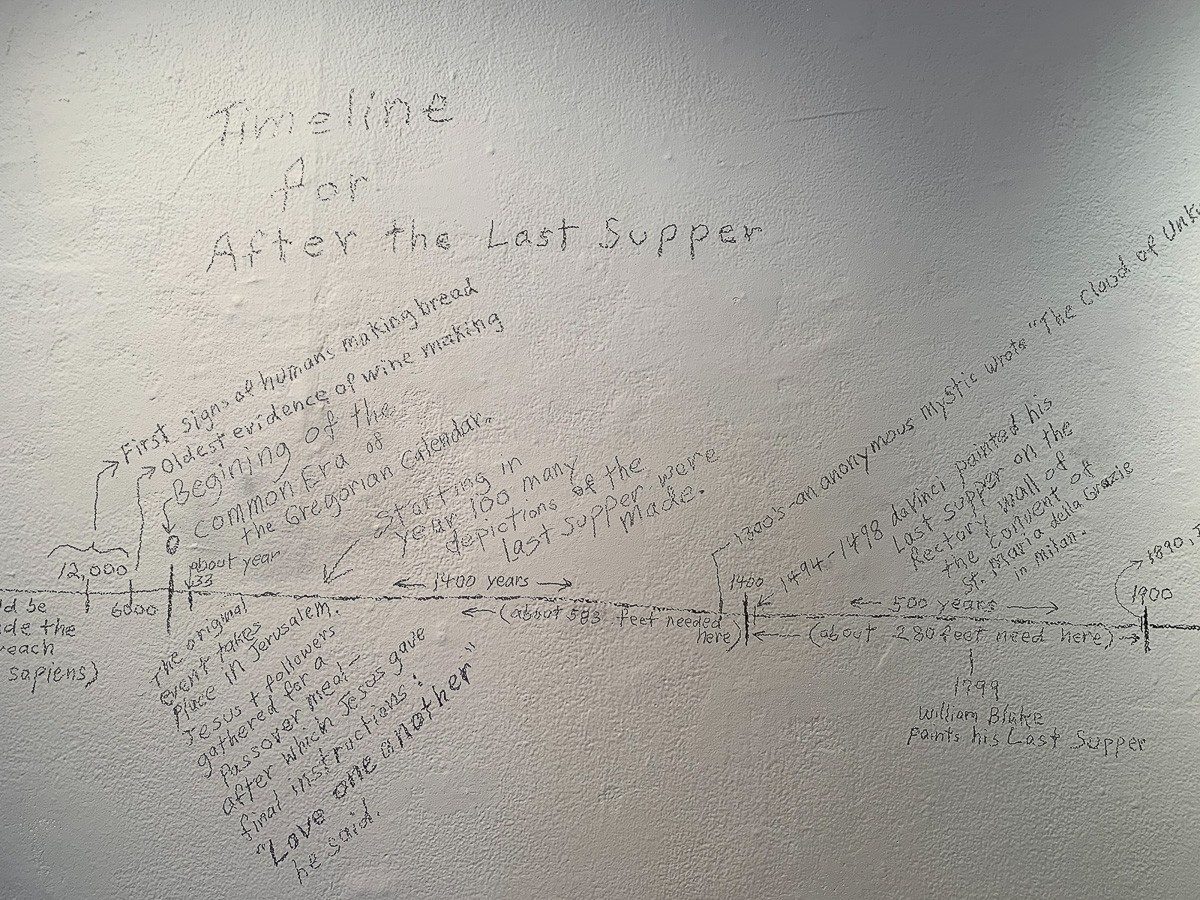 Timeline
for
After the Last Supper
First signs of humans making bread
Oldest evidence of wine making
Begining of the
common Era of
the Gregorian Calendar.
about year
33
Starting in
year 100 many
depictions of the
last supper were
made.
12,000
6000
0
1400 years
(about 583 feet needed
here)
The original
event takes
place in Jerusalem.
Jesus + followers
gathered for a
Passover meal—
after which Jesus gave
final instructions:
"Love one another"
he said.
d be
de the
reach
sapiens)
1300's - an anonymous mystic wrote "The Cloud of Unk
1400
1494-1498 daVinci painted his
Last Supper on the
Rectory wall of
the Convent of
St. Maria della Grazie
in Milan.
500 years
(about 280 feet need here)
1799
William Blake
paints his Last Supper
1890,
1900